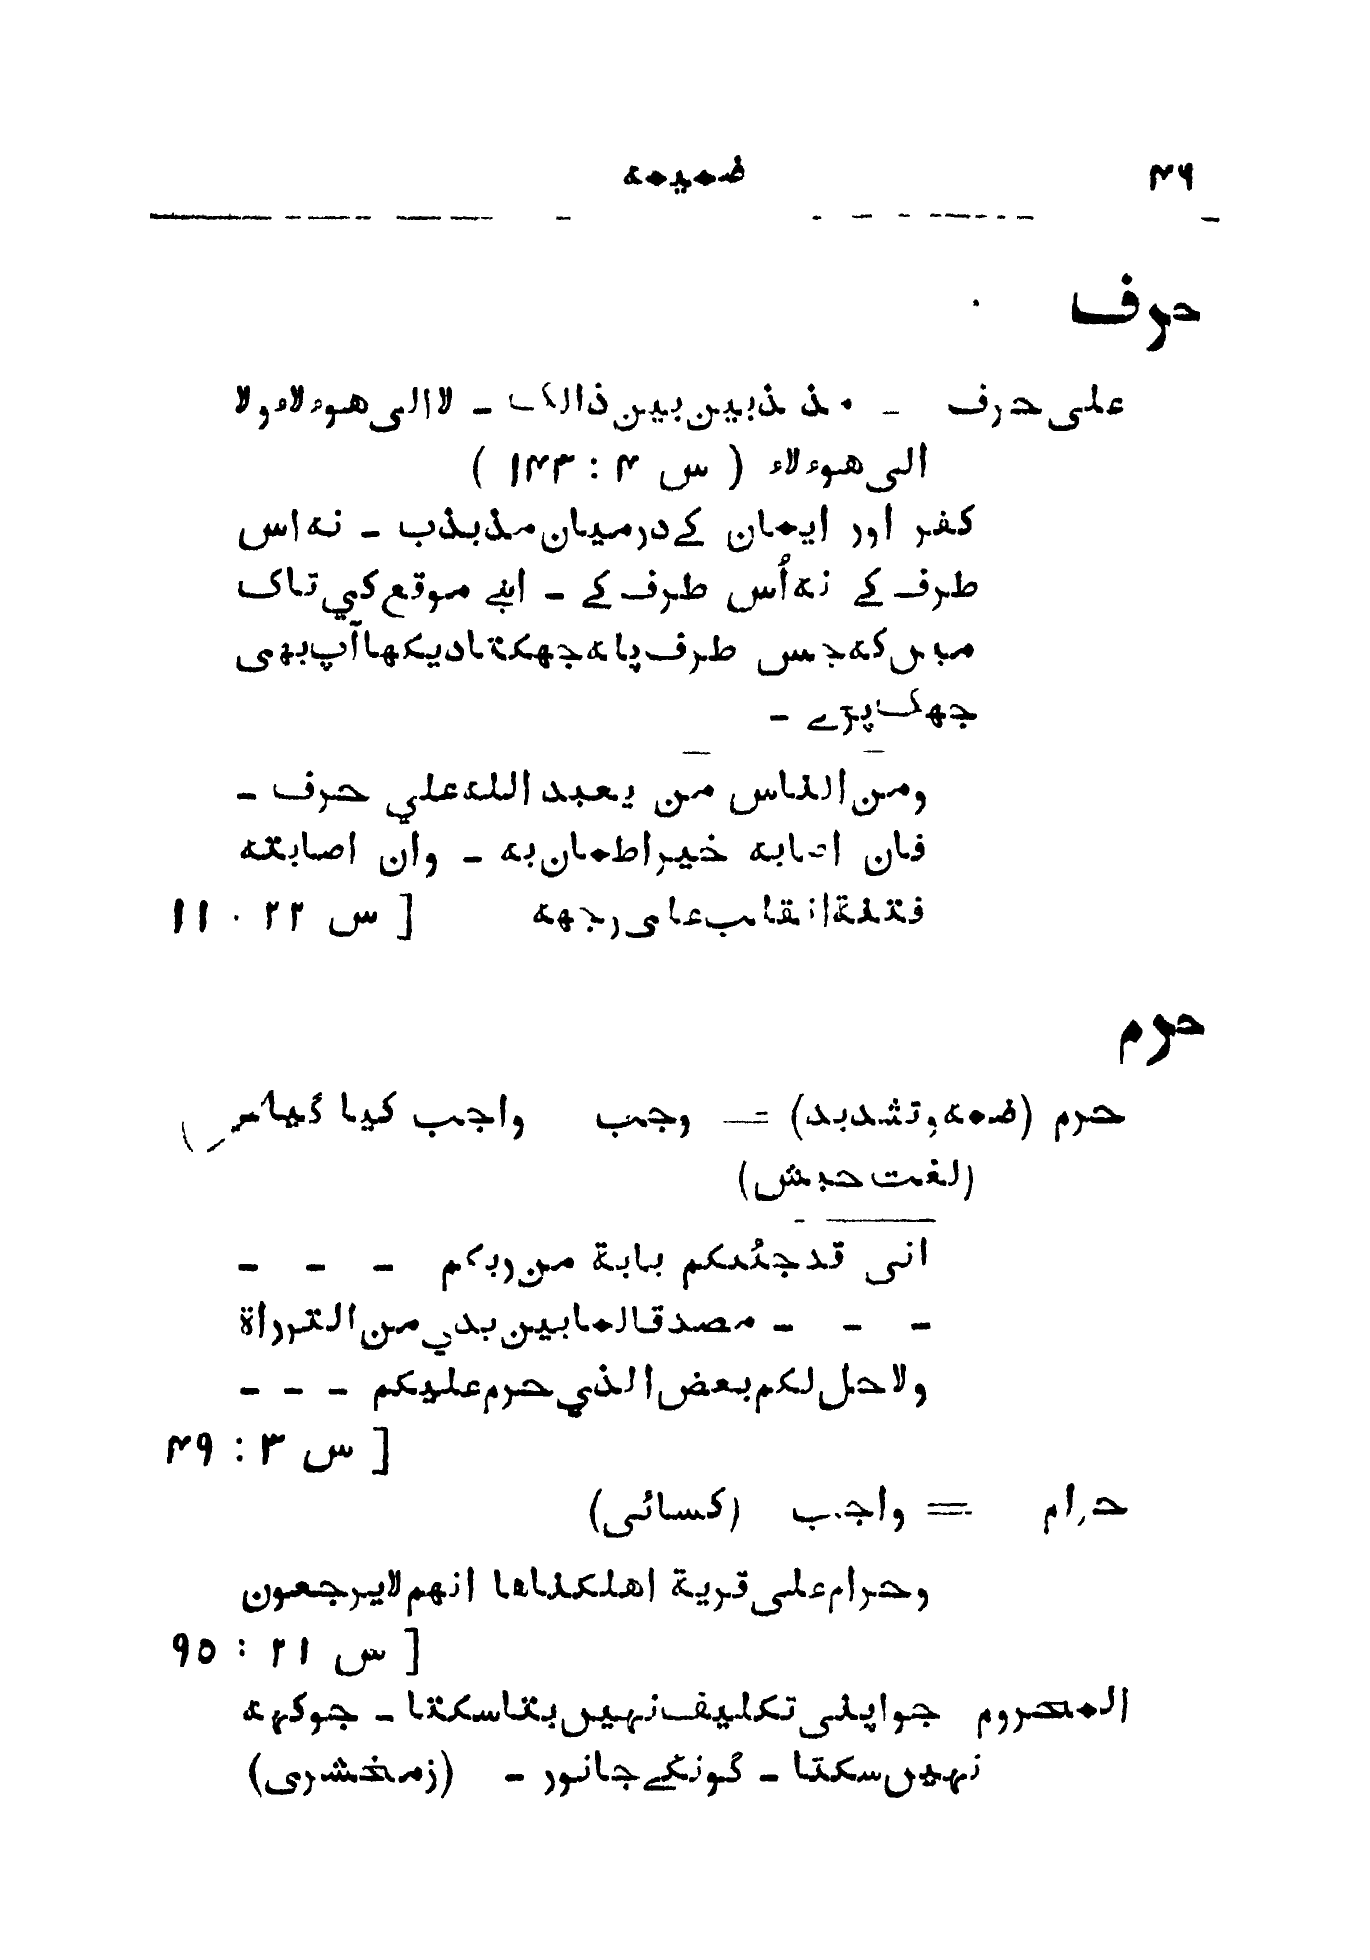 ۴۶ ضمیمہ
حرف
علی حرف ـ مذ ذبین بین ذالک ـ لا الی هوء لاء ولا
الی هوء لاء ( س ۴ : ۱۴۳ )
کفر اور ایمان کے درمیان مذبذب ـ نہ اس
طرف کے نہ اُس طرف کے ـ اپنے موقع کي تاک
میں کہ جس طرف پلہ جهکتا دیکها آپ بهی
جهک پڑے ـ
ومن الناس من یعبد اللہ علي حرف ـ
فان اصابہ خیر اطمان بہ ـ وان اصابتہ
فتنة انقلب علی وجهہ [ س ۲۲ ۰ ۱۱
حرم
حرم (ضمہ و تشدید) = وجب واجب کیا گیا
(لغت حبش)
انی قد جئتکم بایة من ربکم ـ ـ ـ
ـ ـ ـ مصدقا لما بین یدي من التوراة
ولاحل لکم بعض الذي حرم علیکم ـ ـ ـ
[ س ۳ : ۴۹
حرام = واجب (کسائی)
وحرام علی قریة اهلکناها انهم لایرجعون
[ س ۲۱ : ۹۵
المحروم جو اپنی تکلیف نہیں بتا سکتا ـ جو کہہ
نہیں سکتا ـ گونگے جانور ـ (زمخشری)